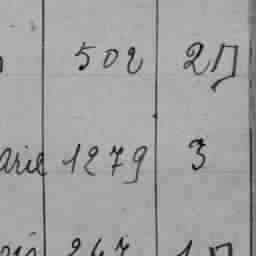 502 2Д
arie 1279 3
267